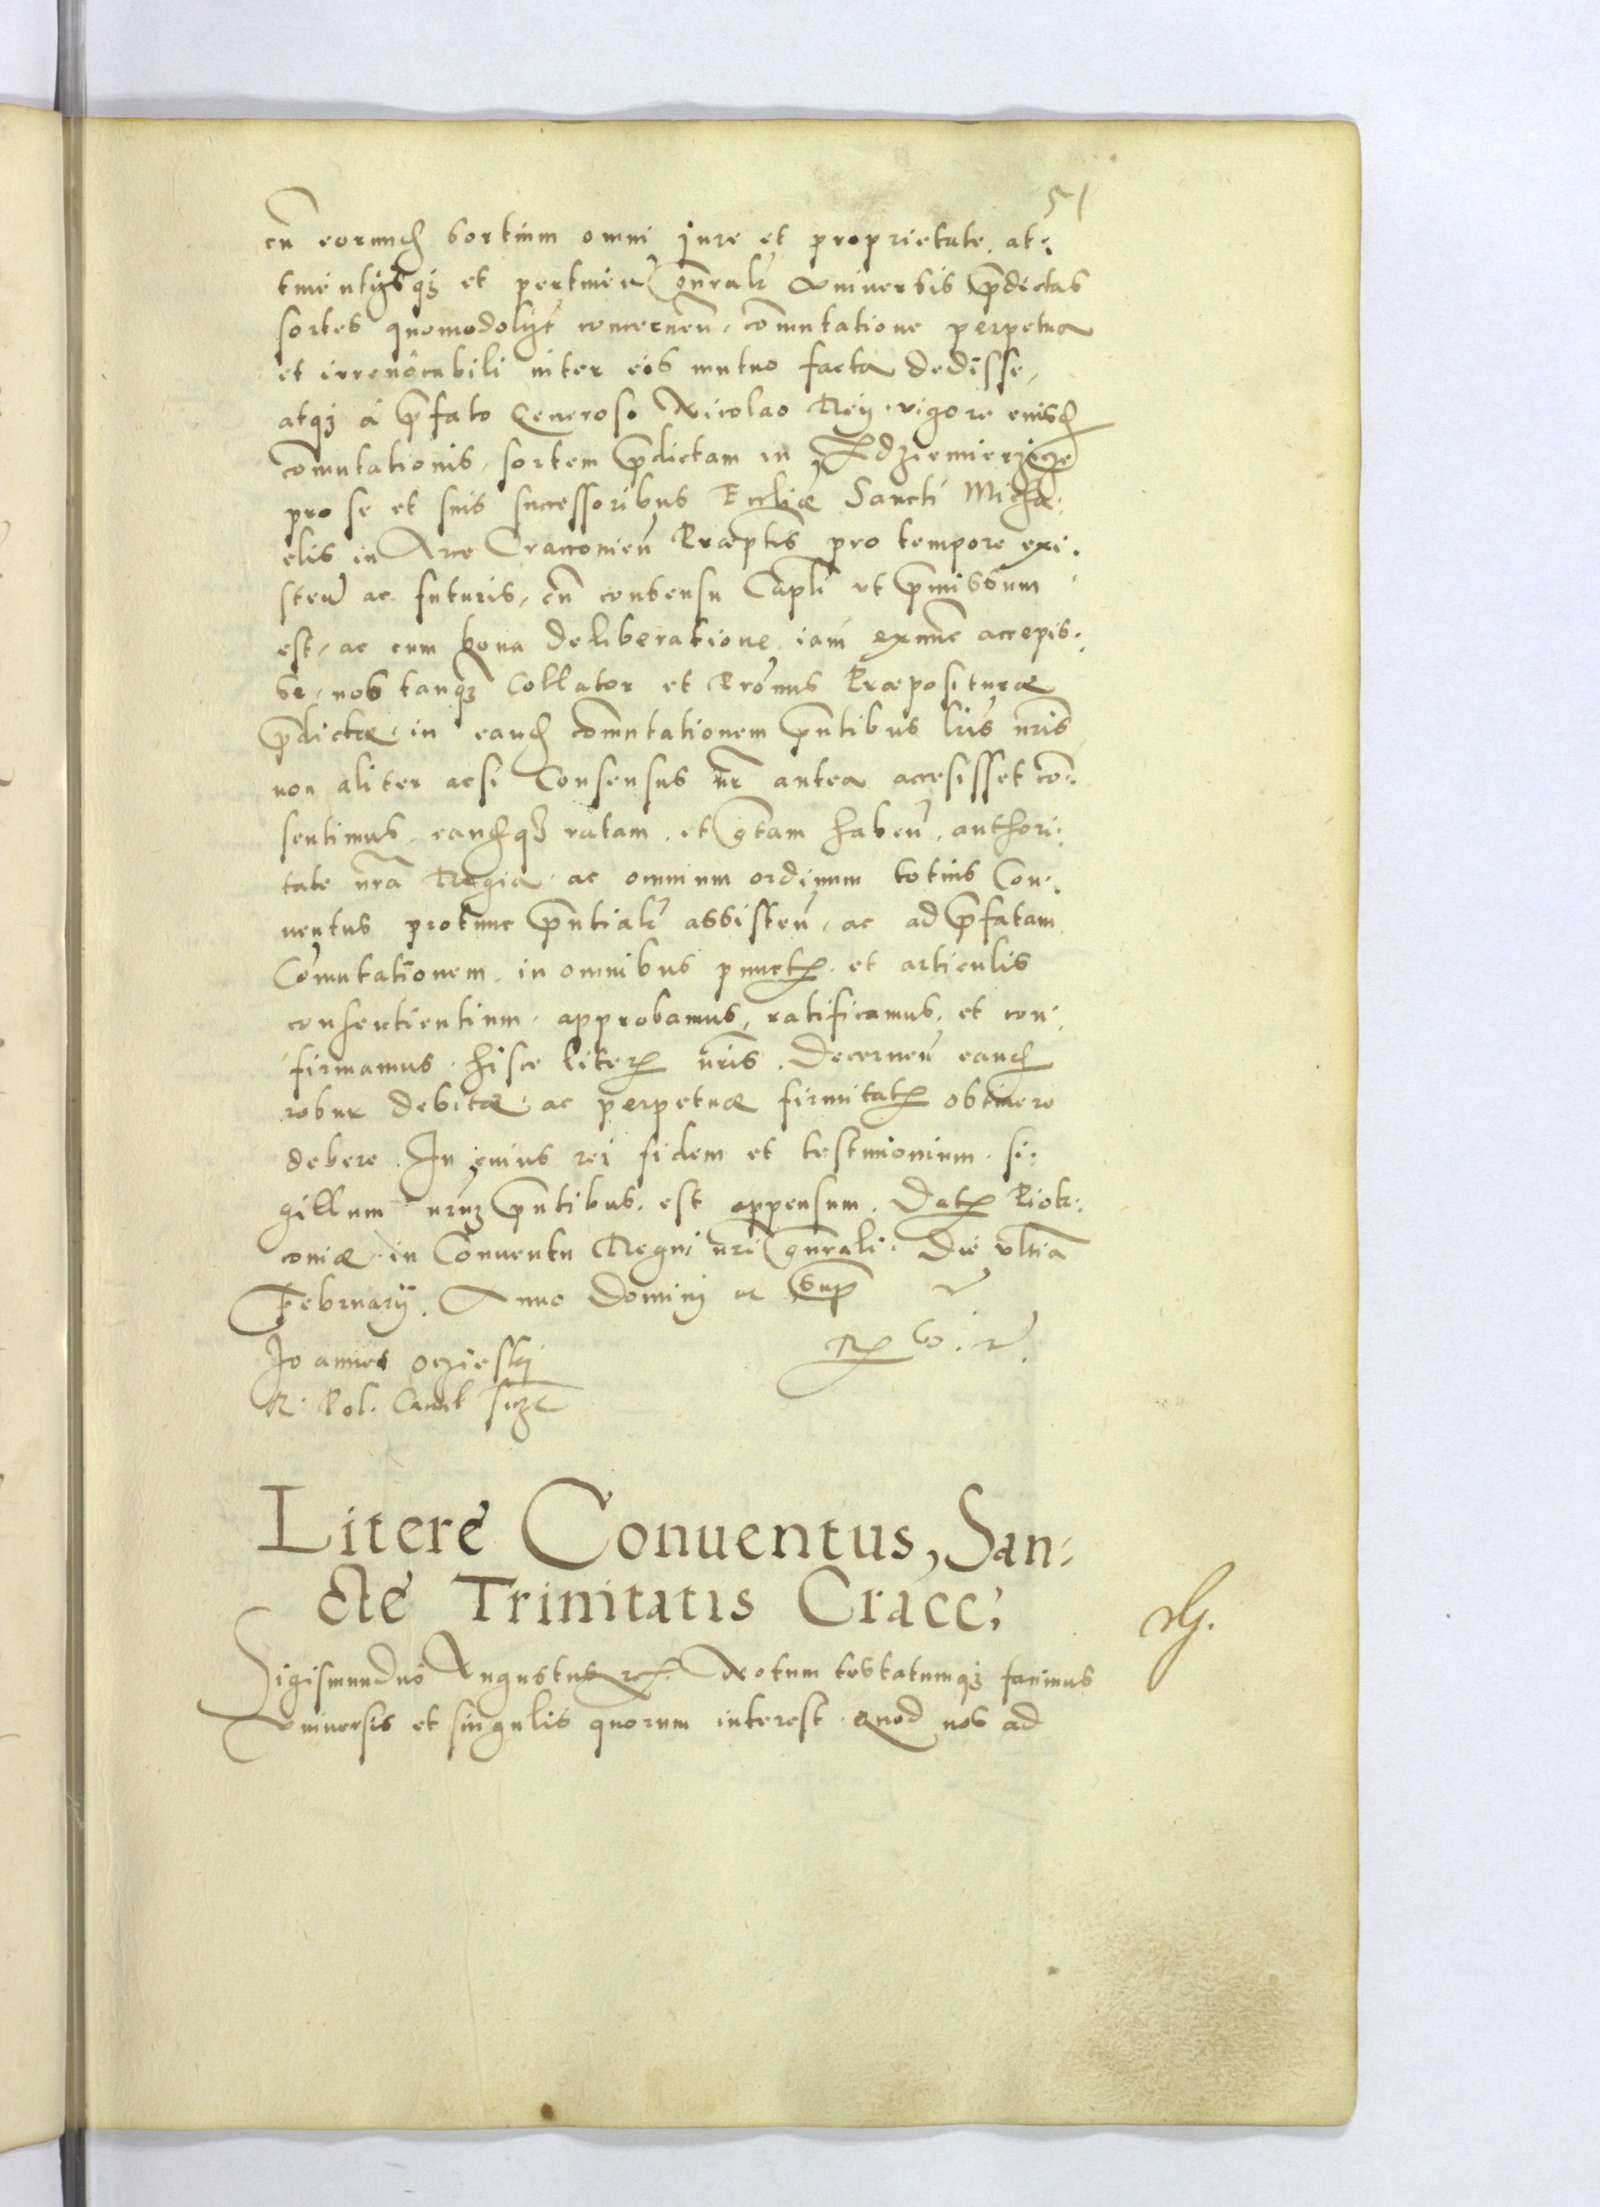 51
cũ eorund sortium omni jure et proprietate, at:
tinentijsqз et pertineñ gñralr Vniversis p̃dictas
sortes quomodolĩt concerneñ, com̃utatione perpetua
et irreuocabili inter eos mutuo facta dedisse,
atqз á p̃fato Generoso Nicolao Reÿ vigore eiusd
com̃utationis, sortem p̃dictam in
pro se et suis successoribus Eccl̃iæ Sancti Micha:
elis in Arce Cracouieñ Præptis pro tempore exi:
steñ ac futuris, cũ consensu Capl̃i vt p̃missum
est, ac cum bona deliberatione iam exnunc accepis:
se, nos tanqз Collator et Pronus Præposituræ
p̃dictæ, in eand com̃utationem p̃ntibus lr̃is nr̃is
non aliter acsi Consensus nr̃ antea accesisset cõ:
sentimus, eandqз ratam, et gr̃tam habeñ, authori:
tate nr̃a Regia, ac omnium ordinum totius Con:
uentus protunc p̃ntialr assisteñ, ac ad p̃fatam
Com̃utationem, in omnibus punctis et articulis
consentientium, approbamus, ratificamus, et con:
firmamus, hisce literis nr̃is. Decerneñ eand
robur debitæ, ac perpetuæ firmitatis obtinere
debere. In cuius rei fidem et testimonium, si:
gillum nr̃uз p̃ntibus, est appensum. Datis Piotr:
couiæ in Conuentu Regni nr̃i gñrali. Die vltĩa
February, Anno Dominj ut sup̃
Joannes ocziesskj
R. Pol. Canc̃l sszt
Litere Conuentus, San:
cte Trinitatis Cracc:
Sigismundus Augustus etc. Notum testatumqз facimus
Vniversis et singulis quorum interest Quod nos ad